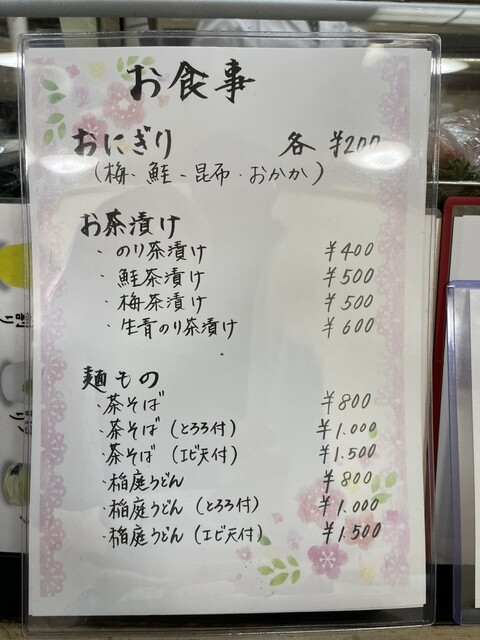 お食事
おにぎり 各 ¥200
(梅、鮭、昆布・おかか)
お茶漬け
・のり茶漬け ¥400
・鮭茶漬け ¥500
・梅茶漬け ¥500
・生青のり茶漬け ¥600
麺もの
・茶そば ¥800
・茶そば(とろろ付) ¥1.000
・茶そば(エビ天付) ¥1.500
・稲庭うどん ¥800
・稲庭うどん(とろろ付) ¥1.000
・稲庭うどん(エビ天付) ¥1.500